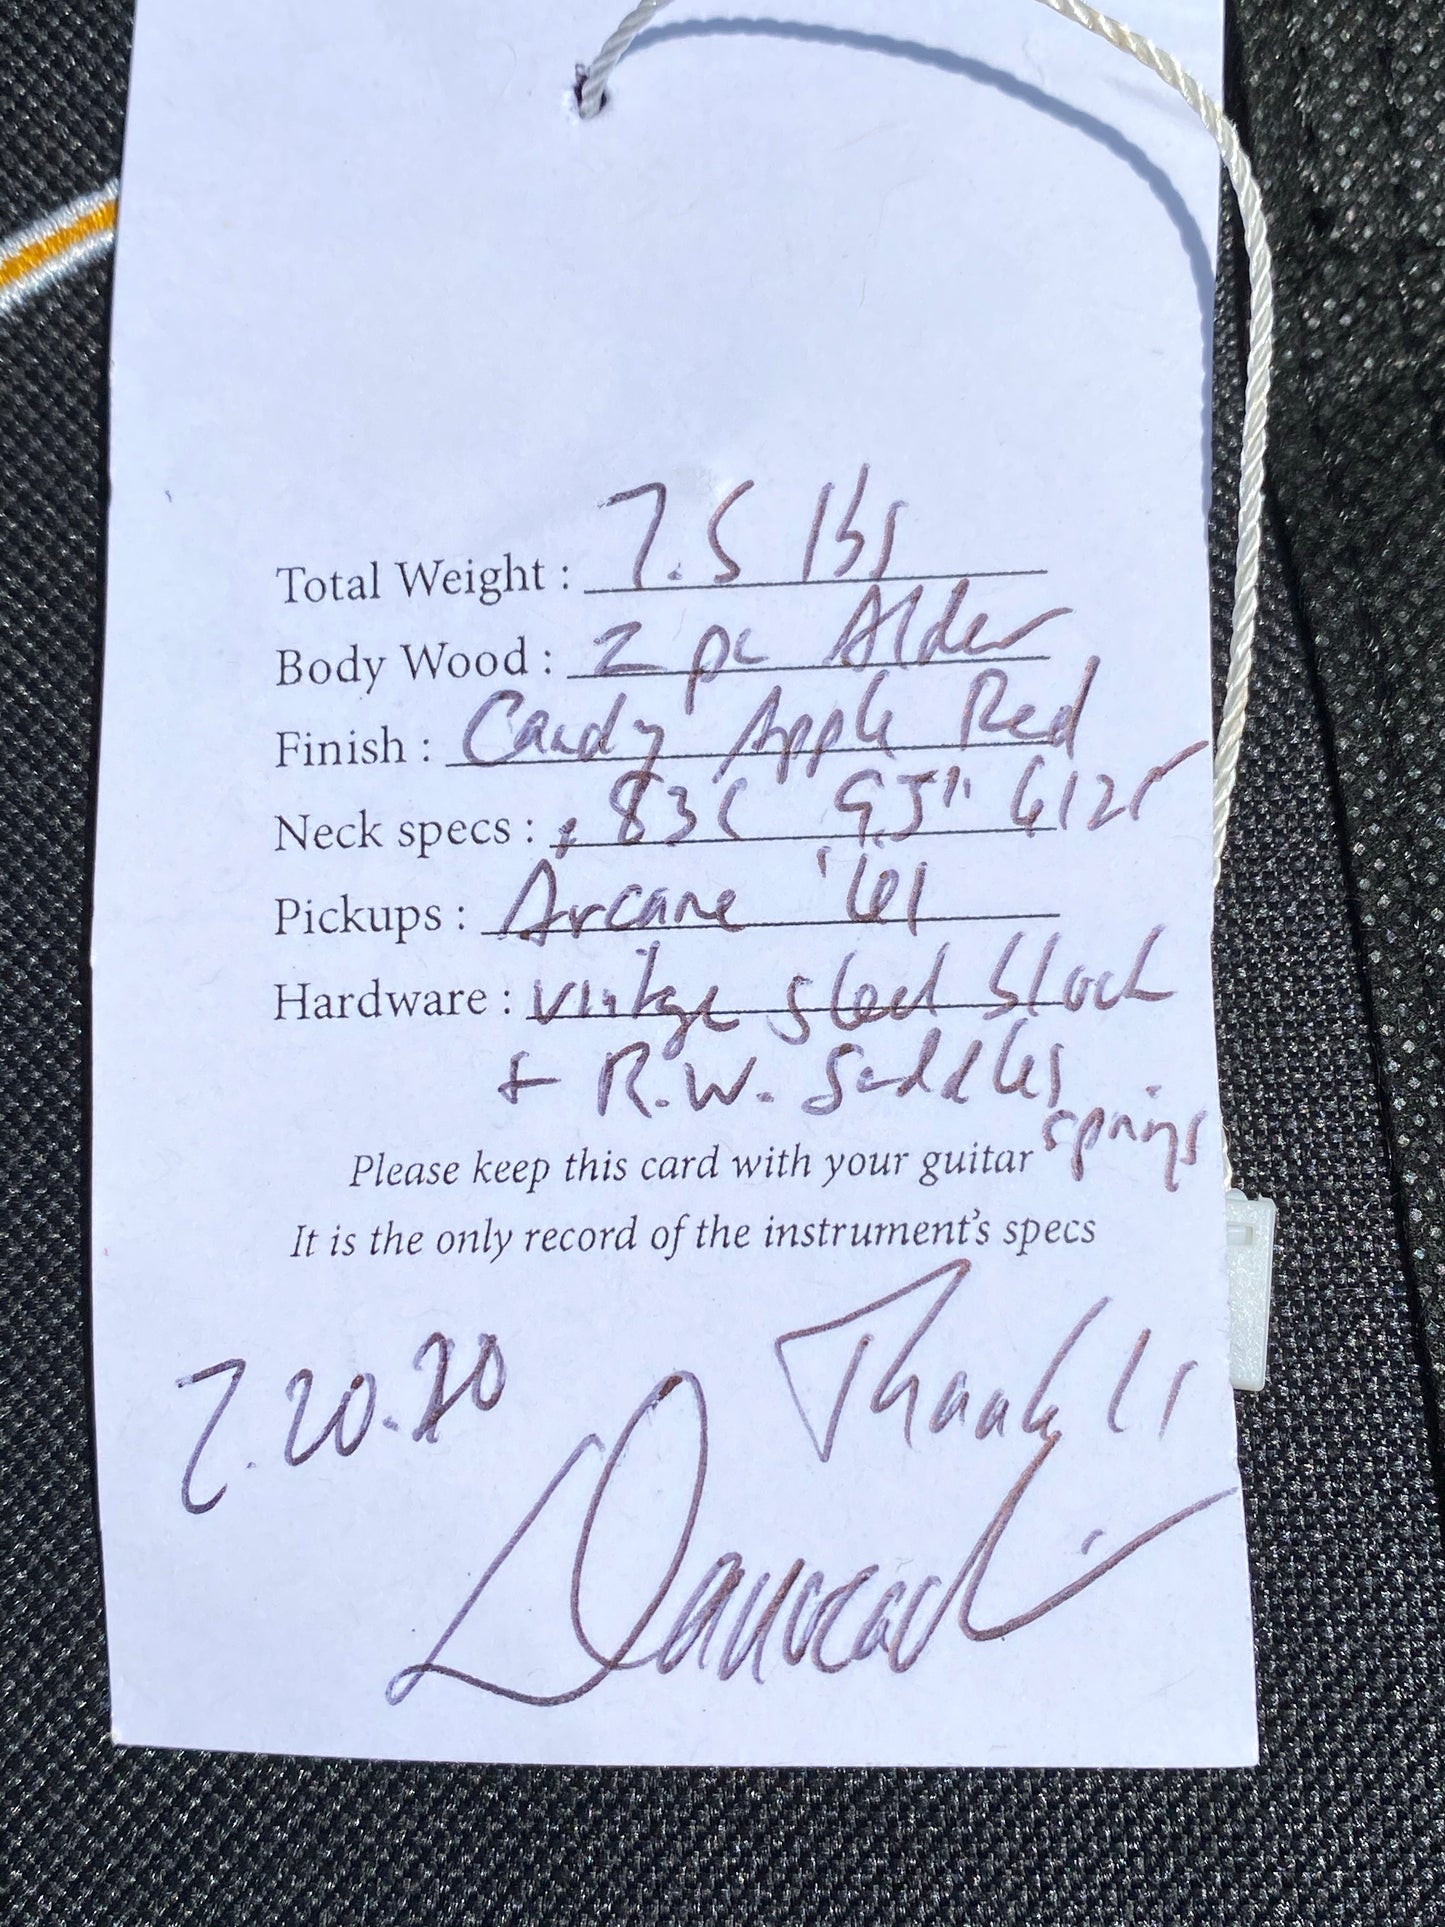 Total Weight : 7.5 lbs
Body Wood : 2 pc Alder
Finish : Candy Apple Red
Neck specs : .83C 9.5" 6125
Pickups : Arcane '61
Hardware : vintage steel block
+ R.W. Saddles
springs
Please keep this card with your guitar
It is the only record of the instrument's specs
7.20.20
Thank